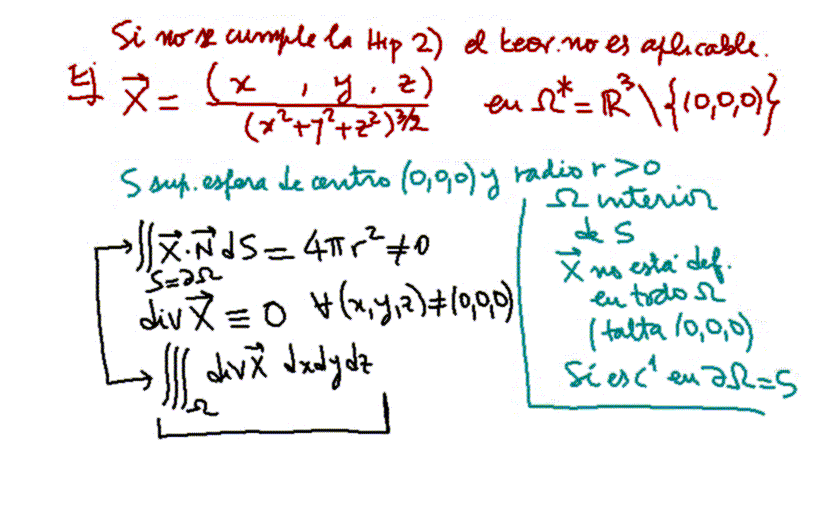 Si no se cumple la Hip 2) el teor. no es aplicable.
Ej X⃗ = (x, y, z) / (x²+y²+z²)^{3/2} en Ω* = ℝ³ \ {(0,0,0)}
S sup. esfera de centro (0,0,0) y radio r > 0
∬_{S=∂Ω} X⃗·N⃗ dS = 4πr² ≠ 0
div X⃗ ≡ 0 ∀(x,y,z) ≠ (0,0,0)
∭_Ω div X⃗ dxdydz
Ω interior
de S
X⃗ no está def.
en todo Ω
(falta (0,0,0)
Sí es C¹ en ∂Ω = S